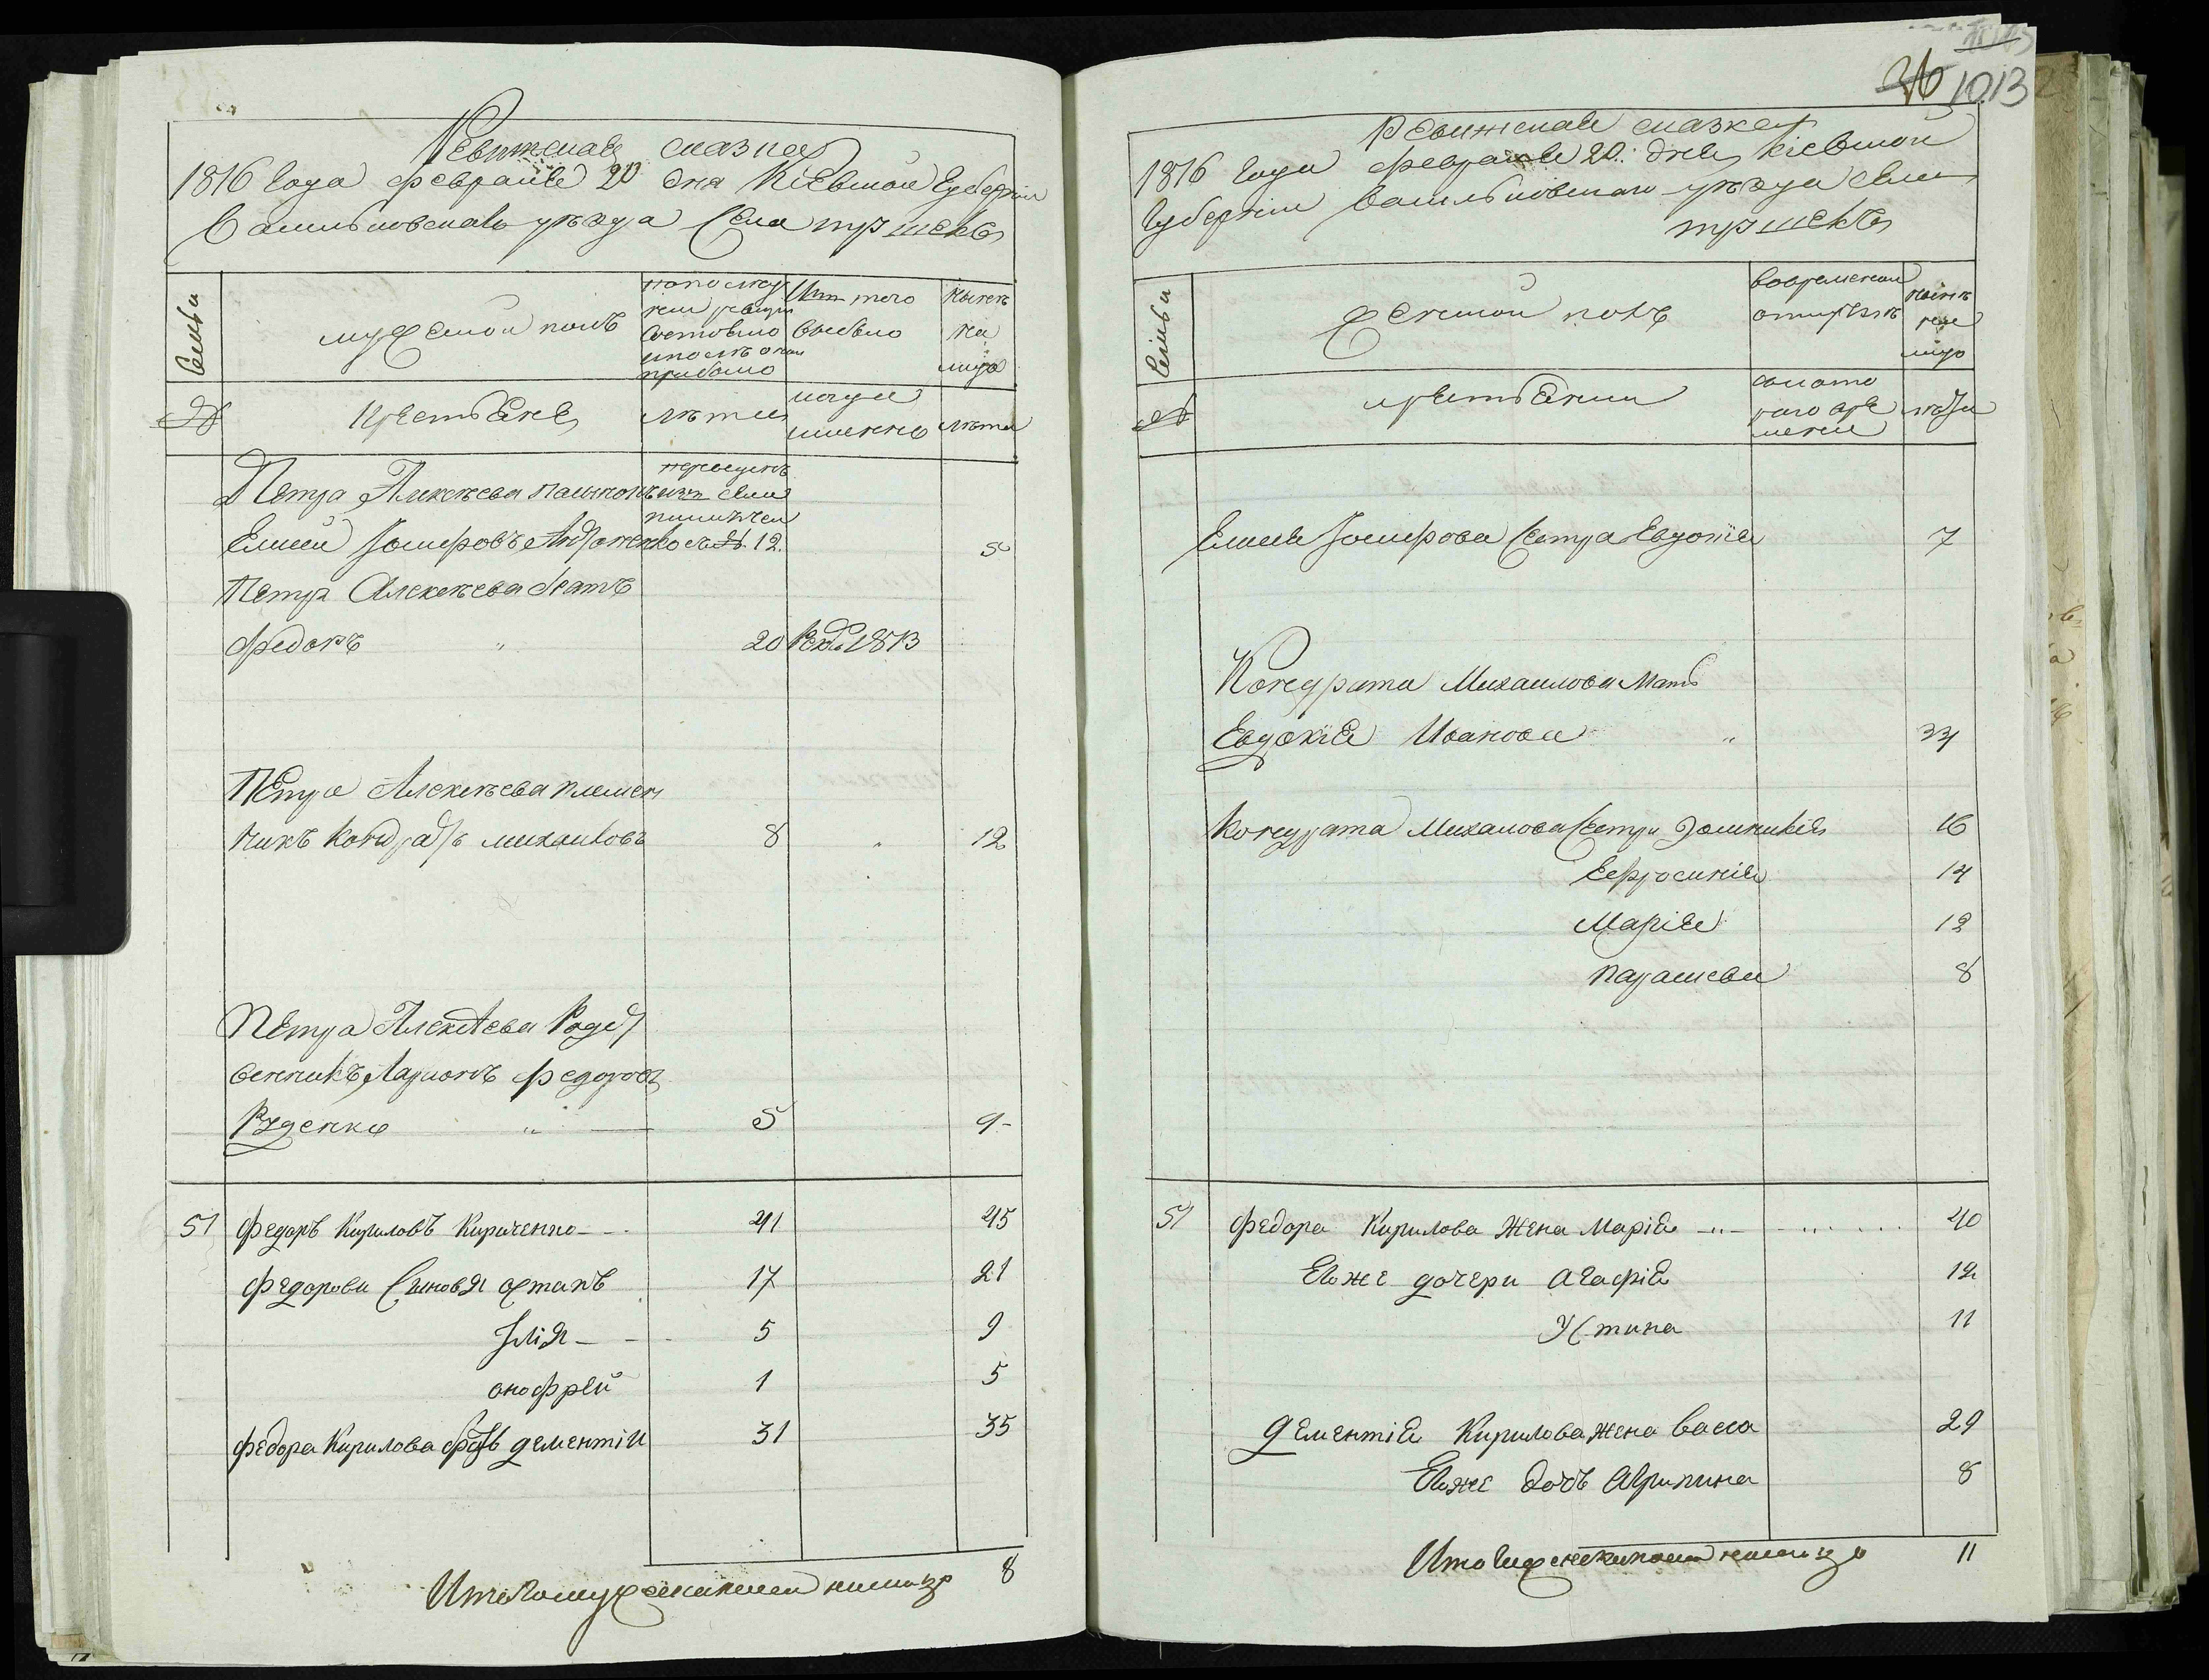 Ревижская сказка
1816 года февраля 20 дня Кіевской Губерніи
Васильковскаго уезда Села трилесъ
Семьи
мужеской полъ
по последней ревизіи состояло и после оной прибыло
Изъ того выбыло
Ныне на лицо
№
Крестьяне
лета
когда именно
лета
Петра Алексеева
переведенъ изъ села
Елисей Іосифовъ
съ № 12.
5
Петра Алексеева братъ
Федоръ
20
1813
Петра Алексеева племян
никъ Кондратъ михаиловъ
8
12
Петра Алексеева Родст
венникъ Ларионъ федоровъ
Руденко
5
9
51 Федоръ Кириловъ Кириченко
41
45
Федорови Сыновя остапъ
17
21
Ілія
5
9
онофрей
1
5
Федора Кирилова братъ дементіи
31
35
Итого мужеска пола на лицо
8
1013
Ревижская сказка
1816 года февраля 20 дня Кіевской
Губерніи Васильковскаго уезда села
трилесъ
Семьи
женской полъ
во временной отлучке
ныне на лицо
№
крестьянки
съ котораго времени
лета
Елисея Іосифова Сестра Евдокія
7
Кондрата Михаилова мать
Евдокія Иванова
34
Кондрата Михаилова Сестри Домникія
16
Ефросинія
14
Марія
12
Параскева
8
51 Федора Кирилова Жена Марія
40
Егоже дочери Агафія
12
Устина
11
Дементія Кирилова жена Васса
29
Егоже дочъ Агрипина
8
Итого женска пола на лицо
11